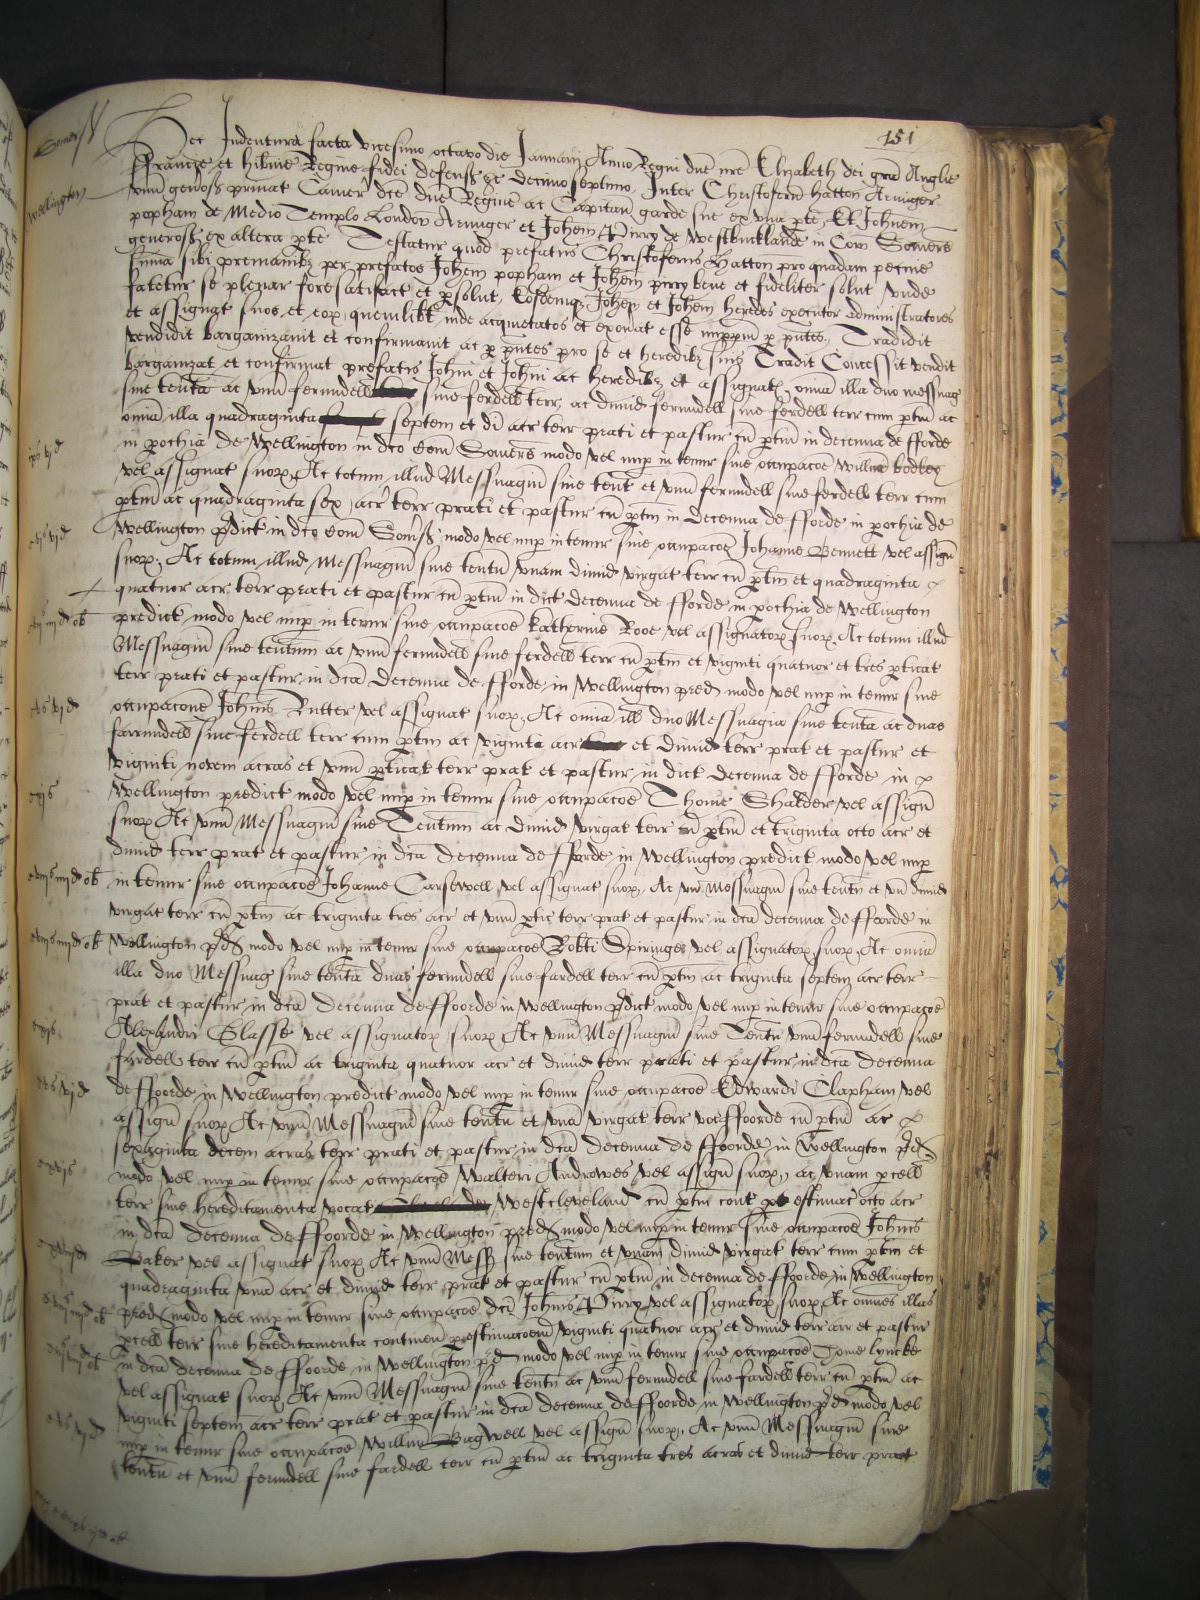 151
Somers
Wellington
Hec Indentura facta vicesimo octavo die Januarij Anno Regni dne nre Elizabeth dei gra Anglie
Francie et Hibnie Regine fidei defens &c decimo septimo, Inter Christoferu Hatton Armiger
unu generos privat Camer dce dne Regine ac Capitan garde sue ex una pte, Et Johnem
popham de Medio Templo London Armiger et Johem Pirry de Westbuckland in Com Somers
geneross ex altera pte Testatur quod prefatus Christoferus Hatton pro quadam pecunie
summa sibi premanibz per prefatos Johem popham et Johem pirry bene et fideliter solut unde
fatetur se plenar fore satisfact et psolut, eosdemqz Johem et Johem heredes executor administratores
et assignat suos et eox quemlibt inde acquietatos et exonat esse imppm p pntes, Tradidit
vendidit barganizavit et confirmavit ac p pntes pro se et heredibz suis Tradit Concessit vendit
barganizat et confirmat prefatis Johni et Johni ac heredibz et assignat, omia illa duo messuag
sive tenta ac unu ferundell sive ferdell terr, ac dimid ferundell sive ferdell terr cum ptin ac
omia illa quadraginta septem et di acr terr prati et pastur cu ptin in decenna de fforde
in pochia de Wellington in dco Com Somers modo vel nup in tenur sive occupacoe Willmi
vel assignat suox, Ac totum illud Messuagiu sive tent et unu ferundell sive ferdell terr cum
ptin ac quadraginta sex acr terr prati et pastur cu ptin in decenna de fforde in pochia de
Wellington pdict in dco Com Somss, modo vel nup in tenur sive occupacoe Johanne Bennett vel assign
suox, Ac totum illud Messuagiu sive tentu unam dimid virgat terr cu ptin et quadraginta
quatuor acr terr prati et pastur cu ptin in dict decenna de fforde in pochia de Wellington
predict modo vel nup in tenur sive occupacoe Katherine Rooe vel assignatox suox Ac totum illud
Messuagiu sive tentum ac unu ferundell sive ferdell terr cu ptin et viginti quatuor et tres pticat
terr prati et pastur, in dca Decenna de fforde, in Wellington pred modo vel nup in tenur sive
occupacone Johnis Rutter vel assignat suox, Ac omia ill duo Messuagia sive tenta ac duas
farrundell sive ferdell terr cum ptin ac viginta acr et dimid terr prat et pastur et
viginti novem acras et unu pticat terr prat et pastur in dict decenna de fforde in p
Wellington predict modo vel nup in tenur sive occupacoe Thome Shalder vel assign
suox Ac unu Messuagiu sive Tentum ac dimid virgat terr cu ptin et triginta octo acr et
dimid terr prat et pastur, in dca decenna de fforde in Wellington predict modo vel nup
in tenur sive occupacoe Johanne Carsewell vel assignat suox, Ac un Messuagiu sive tentu et un dimid
virgat terr cu ptin ac triginta tres acr et unu ptic terr prat et pastur in dca decenna de fforde in
Wellington pd modo vel nup in tenur sive occupacoe Robti Springer vel assignatox suox, Ac omia
illa duo Messuag sive tenta duas ferundell sive fardell terr cu ptin ac triginta septem acr terr
prat et pastur in dca Decenna de fforde in Wellington pdict modo vel nup in tenur sive occupacoe
Alexandri Glasse vel assignatox suox Ac unu Messuagiu sive Tentu unu ferundell sive
fardell terr cu ptin ac triginta quatuor acr et dimid terr prati et pastur in dca decenna
de fforde in Wellington predict modo vel nup in tenur sive occupacoe Edwardi Clapham vel
assign suox Ac unu Messuagiu sive tentu et una virgat terr voc fforde cu ptin ac p
sexaginta decem acras terr prati et pastur in dca decenna de fforde in Wellington pd
modo vel nup in tenur sive occupacoe Walteri Andrewes vel assign suox, ac unam pcell
terr sive hereditamenta vocat Westcleveland cu ptin cont p estimac octo acr
in dca decenna de fforde in Wellington pred modo vel nup in tenur sive occupacoe Johnis
Baker vel assignat suox Ac unu Mess sive tentum et unam dimid virgat terr cum ptin et
quadraginta una acr et dimid terr prat et pastur cu ptin in decenna de fforde in Wellington
pred modo vel nup in tenur sive occupacoe dci Johnis Pirry vel assignatox suox Ac omnes illas
pcell terr sive hereditamenta continen p estimacoem viginti quatuor acr et dimid terr arr et pastur
in dca decenna de fforde in Wellington pd modo vel nup in tenur sive occupacoe Tome Lyncke
vel assignat suox Ac unu Messuagiu sive tentu ac unu ferundell sive fardell terr cu ptin ac
viginti septem acr terr prat et pastur in dca decenna de fforde in Wellington pd modo vel
nup in tenur sive occupacoe Willmi Bagwell vel assign suox, Ac unu Messuagiu sive
tentu et unu ferundell sive fardell terr cu ptin ac triginta tres acras et dimid terr prat